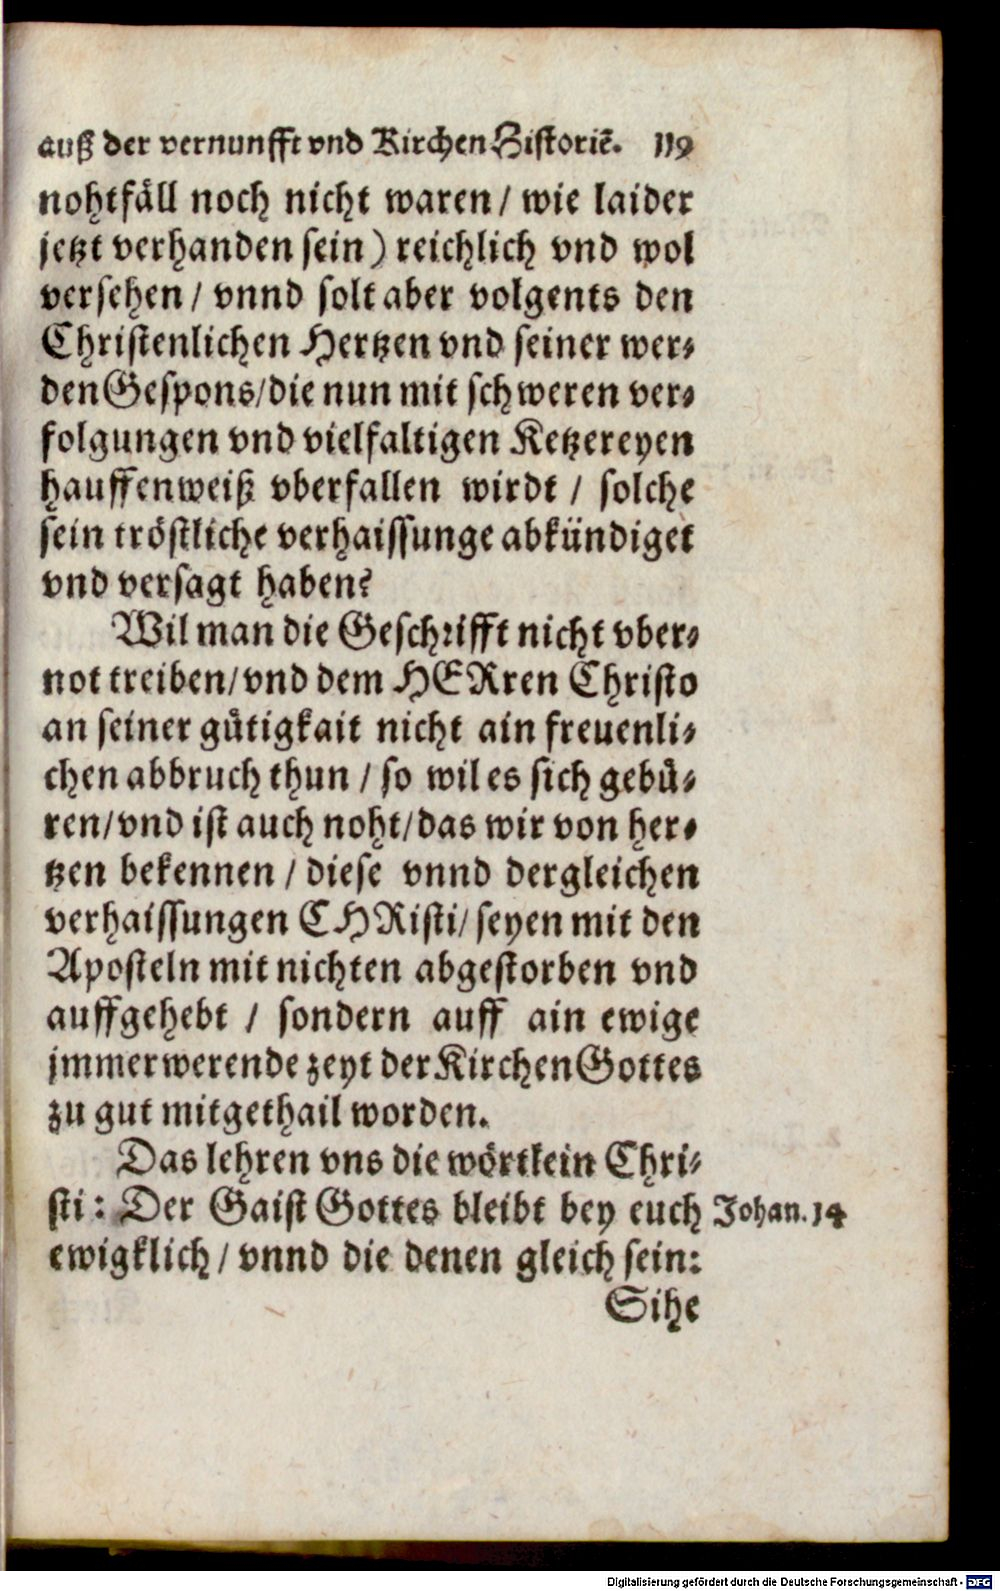 auß der vernunfft vnd Kirchen Historiẽ. 119
nohtfäll noch nicht waren / wie laider
jetzt verhanden sein) reichlich vnd wol
versehen / vnnd solt aber volgents den
Christenlichen Hertzen vnd seiner wer⸗
den Gespons/die nun mit schweren ver⸗
folgungen vnd vielfaltigen Ketzereyen
hauffenweiß vberfallen wirdt / solche
sein tröstliche verhaissunge abkündiget
vnd versagt haben?
Wil man die Geschrifft nicht vber⸗
not treiben/vnd dem HERren Christo
an seiner gütigkait nicht ain freuenli⸗
chen abbruch thun / so wil es sich gebü⸗
ren/vnd ist auch noht/das wir von her⸗
tzen bekennen / diese vnnd dergleichen
verhaissungen CHRisti/ seyen mit den
Aposteln mit nichten abgestorben vnd
auffgehebt / sondern auff ain ewige
jmmerwerende zeyt der Kirchen Gottes
zu gut mitgethail worden.
Das lehren vns die wörtlein Chri⸗
sti: Der Gaist Gottes bleibt bey euch Johan. 14
ewigklich / vnnd die denen gleich sein:
Sihe
Digitalisierung gefördert durch die Deutsche Forschungsgemeinschaft - DFG